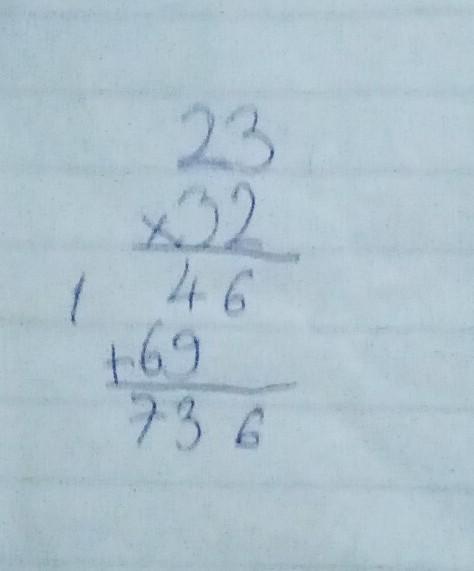 23
×32
1 46
+69
736